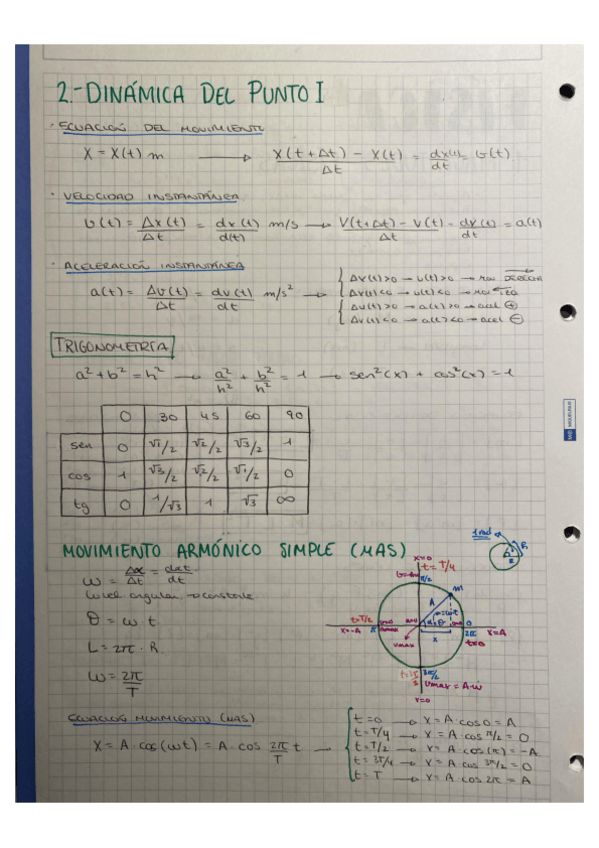 2.- DINÁMICA DEL PUNTO I
· ECUACIÓN DEL MOVIMIENTO
X = X(t) m → X(t+Δt) - X(t) / Δt = dx(t)/dt = v(t)
· VELOCIDAD INSTANTÁNEA
v(t) = Δx(t)/Δt = dx(t)/d(t) m/s → V(t+Δt) - V(t) / Δt = dv(t)/dt = a(t)
· ACELERACIÓN INSTANTÁNEA
a(t) = Δv(t)/Δt = dv(t)/dt m/s² →
Δx(t)>0 → v(t)>0 → mov DERECHA
Δx(t)<0 → v(t)<0 → mov IZQ
Δv(t)>0 → a(t)>0 → acel ⊕
Δv(t)<0 → a(t)<0 → acel ⊖
TRIGONOMETRÍA
a² + b² = h² → a²/h² + b²/h² = 1 → sen²(x) + cos²(x) = 1
0 30 45 60 90
sen 0 √1/2 √2/2 √3/2 1
cos 1 √3/2 √2/2 √1/2 0
tg 0 1/√3 1 √3 ∞
1 rad
R
R
MOVIMIENTO ARMÓNICO SIMPLE (MAS)
ω = Δα/Δt = dα/dt
vel angular → constante
θ = ω · t
L = 2π · R
ω = 2π/T
x=0
t = T/4
π/2
m
A
t=T/2
x=-A
π
vmax
x
0
2π
t=0
x=A
3π/2
vmax = A·ω
x=0
ECUACIÓN MOVIMIENTO (MAS)
X = A · cos(ωt) = A · cos 2π/T t →
t=0 → x = A · cos 0 = A
t=T/4 → x = A · cos π/2 = 0
t=T/2 → x = A · cos(π) = -A
t=3T/4 → x = A cos 3π/2 = 0
t=T → x = A cos 2π = A